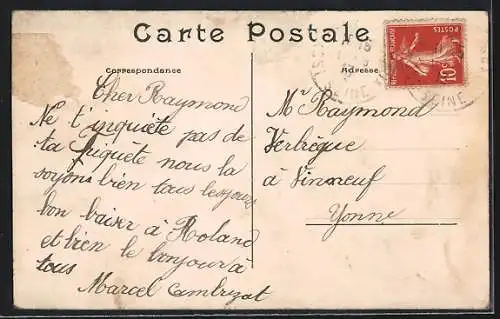 Carte Postale
Correspondance
Adresse
Cher Raymond
Ne t'inquiète pas de
ta friquète nous la
soyons bien tous les jours
bon baiser à Roland
et bien le bonjour à
tous
Marcel
Mr Raymond
Verbrègue
à Vinneuf
Yonne
POSTES
10c
SEINE